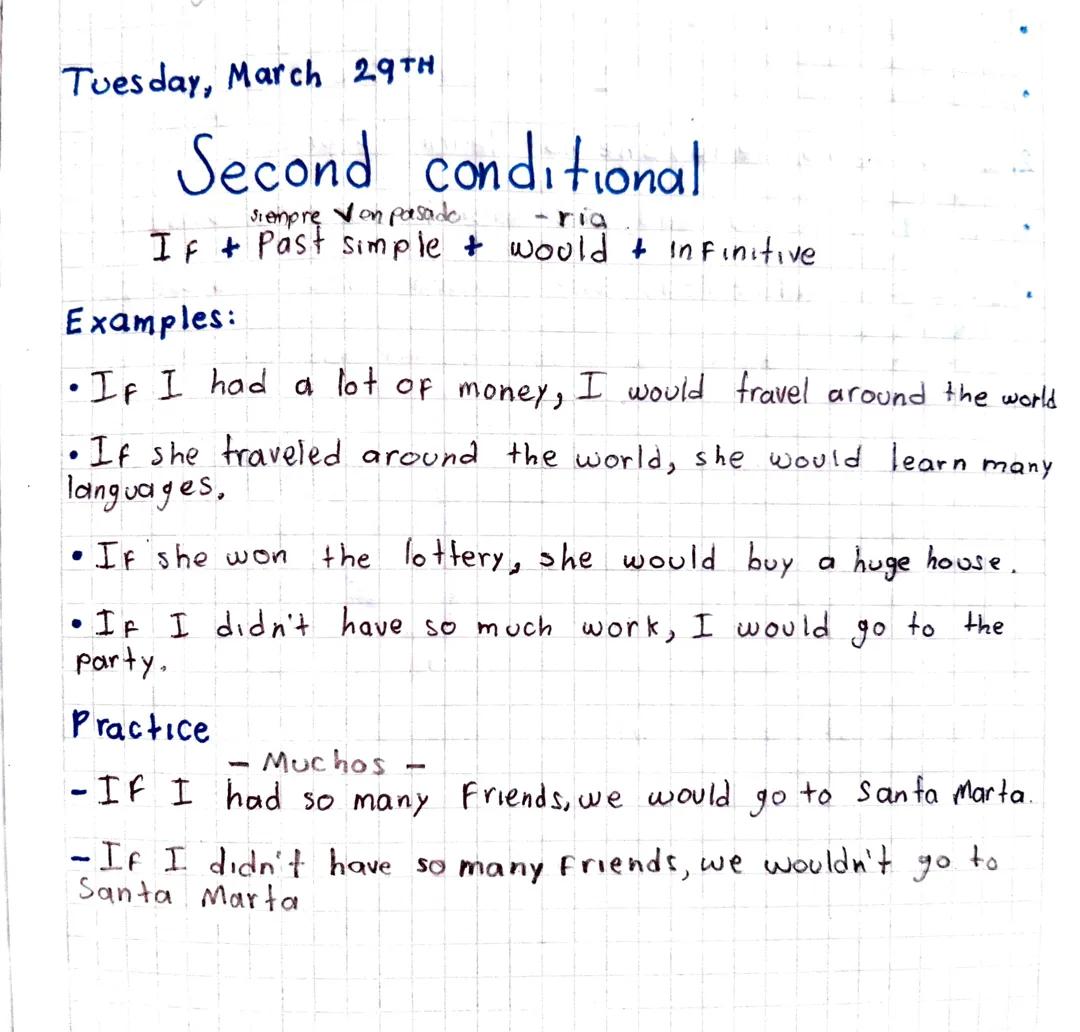 Tuesday, March 29TH
Second conditional
siempre V en pasado - ria
If + Past simple + would + infinitive
Examples:
• If I had a lot of money, I would travel around the world
• If she traveled around the world, she would learn many
languages.
• If she won the lottery, she would buy a huge house.
• If I didn't have so much work, I would go to the
party.
Practice
- Muchos -
- If I had so many friends, we would go to Santa Marta.
- If I didn't have so many friends, we wouldn't go to
Santa Marta